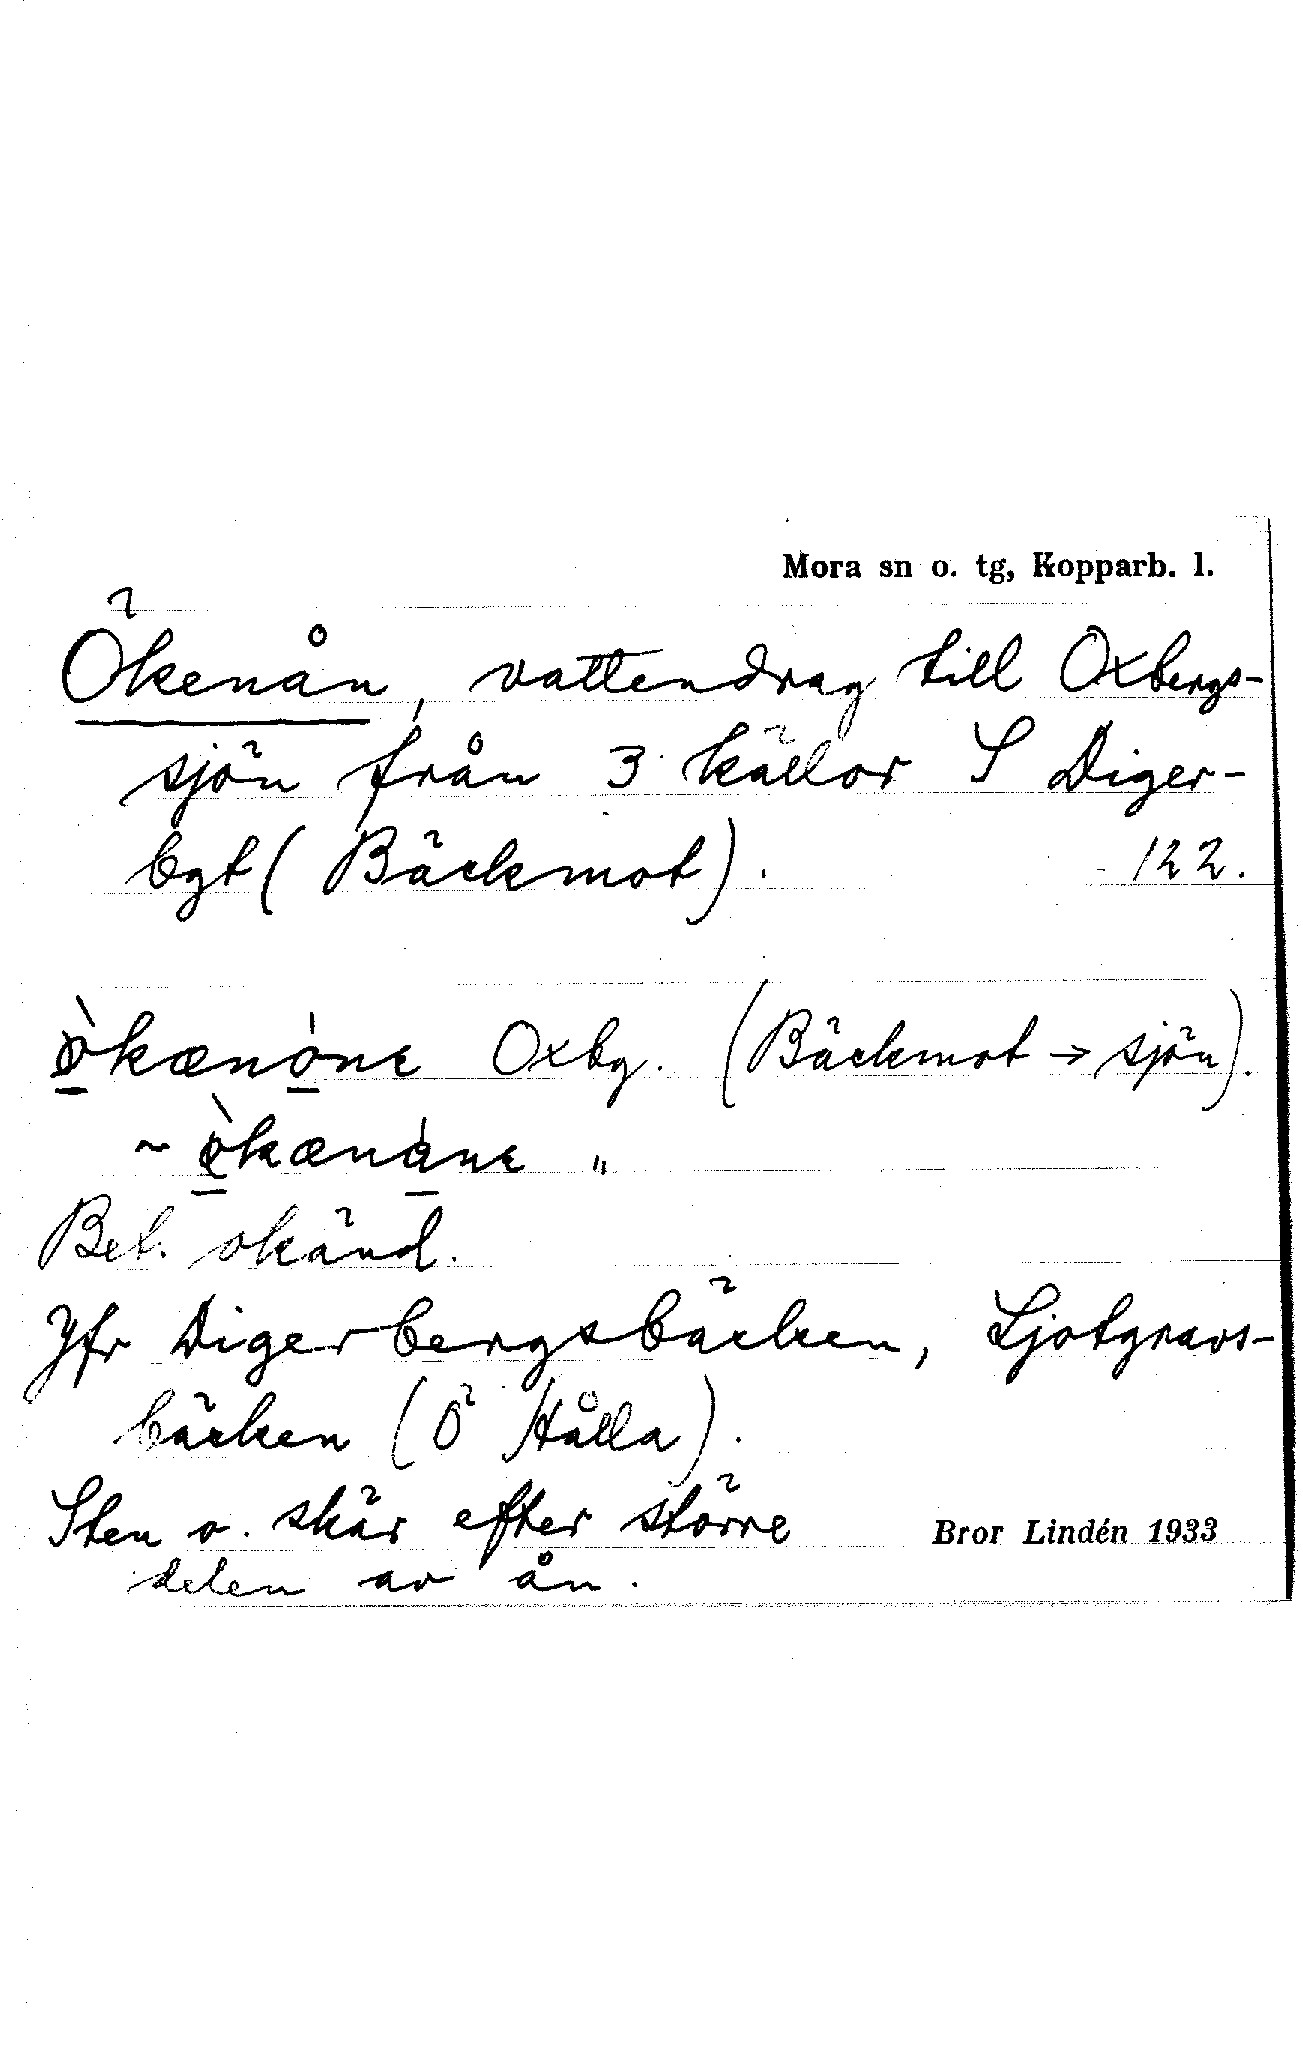 Mora sn o. tg, Kopparb. l.
Ökenån, vattendrag till Oxbergs-
sjön från 3 källor S Diger-
bgt (Bäckmot). 122.
ò̱kænó̱nɛ Oxbg. (Bäckmot → sjön).
~ ò̱kæná̱nɛ "
Bet. okänd.
Jfr Digerbergsbäcken, Ljotgravs-
bäcken (Ö Hålla).
Sten o. skär efter större
delen av ån.
Bror Lindén 1933